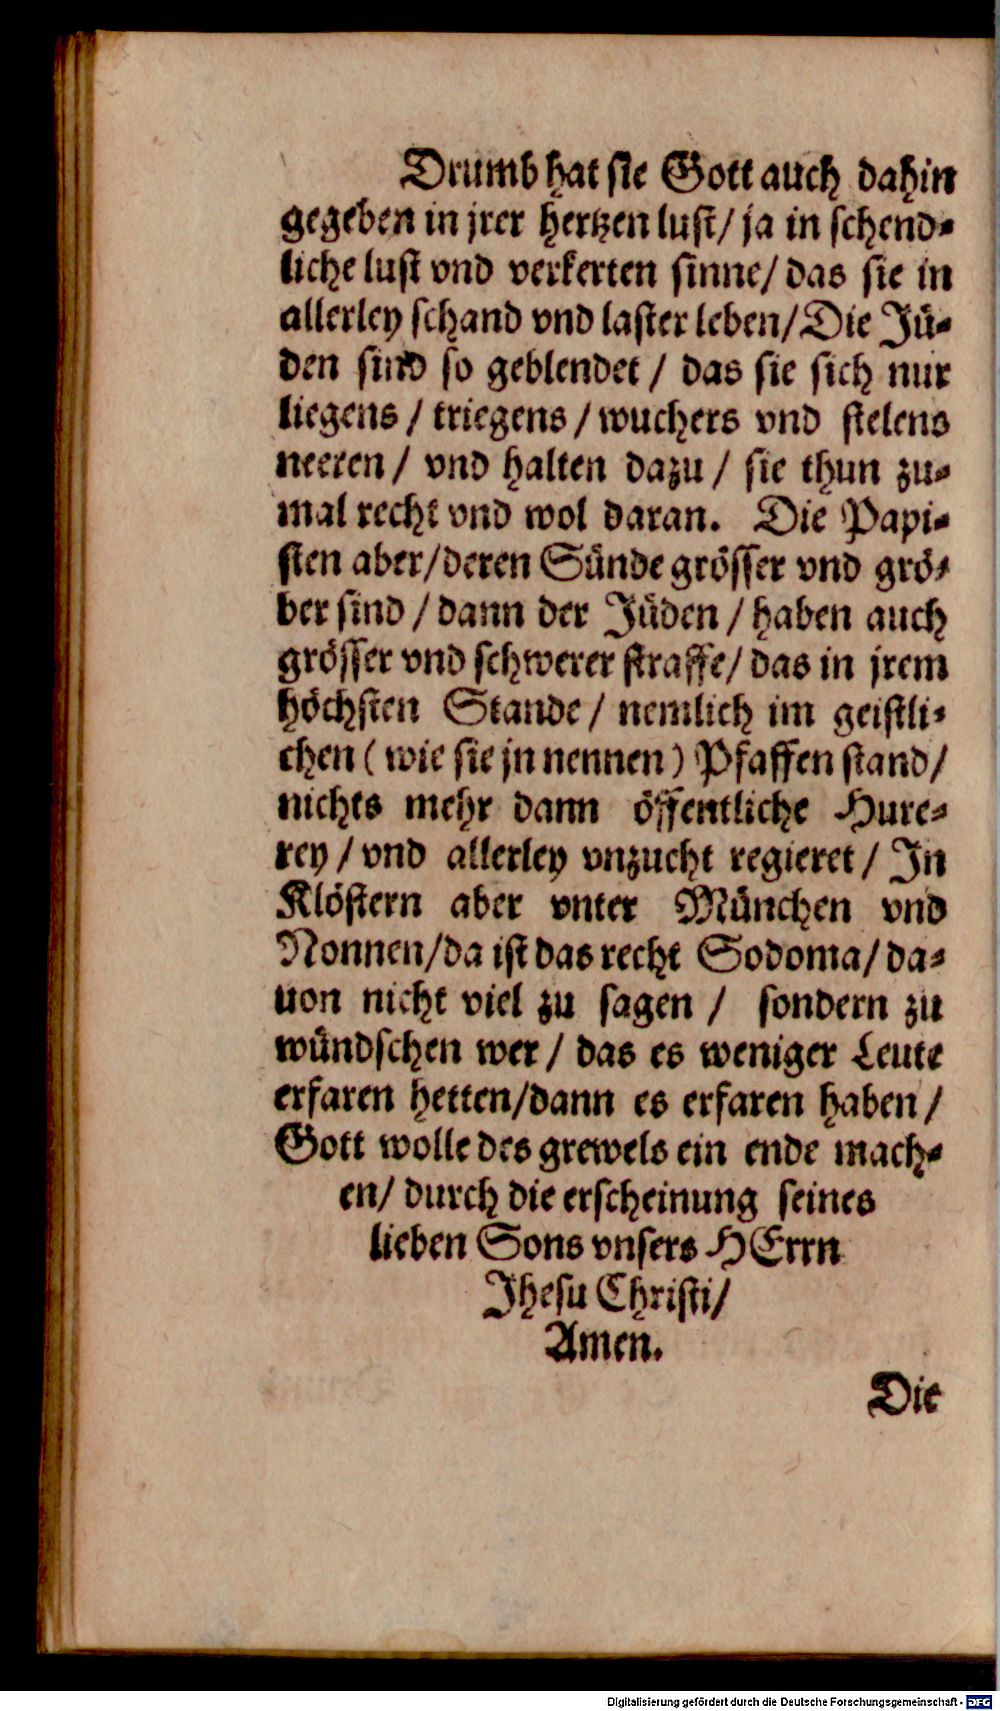 Drumb hat sie Gott auch dahin
gegeben in jrer hertzen lust/ ja in schend⸗
liche lust vnd verkerten sinne/ das sie in
allerley schand vnd laster leben/ Die Jü⸗
den sind so geblendet / das sie sich nur
liegens / triegens / wuchers vnd stelens
neeren / vnd halten dazu / sie thun zu⸗
mal recht vnd wol daran. Die Papi⸗
sten aber/deren Sünde grösser vnd grö⸗
ber sind / dann der Jüden / haben auch
grösser vnd schwerer straffe/ das in jrem
höchsten Stande / nemlich im geistli⸗
chen ( wie sie jn nennen ) Pfaffen stand/
nichts mehr dann öffentliche Hure⸗
rey / vnd allerley vnzucht regieret / In
Klöstern aber vnter München vnd
Nonnen/da ist das recht Sodoma/ da⸗
uon nicht viel zu sagen / sondern zu
wündschen wer / das es weniger Leute
erfaren hetten/dann es erfaren haben /
Gott wolle des grewels ein ende mach⸗
en/ durch die erscheinung seines
lieben Sons vnsers HErrn
Jhesu Christi/
Amen.
Die
Digitalisierung gefördert durch die Deutsche Forschungsgemeinschaft - DFG